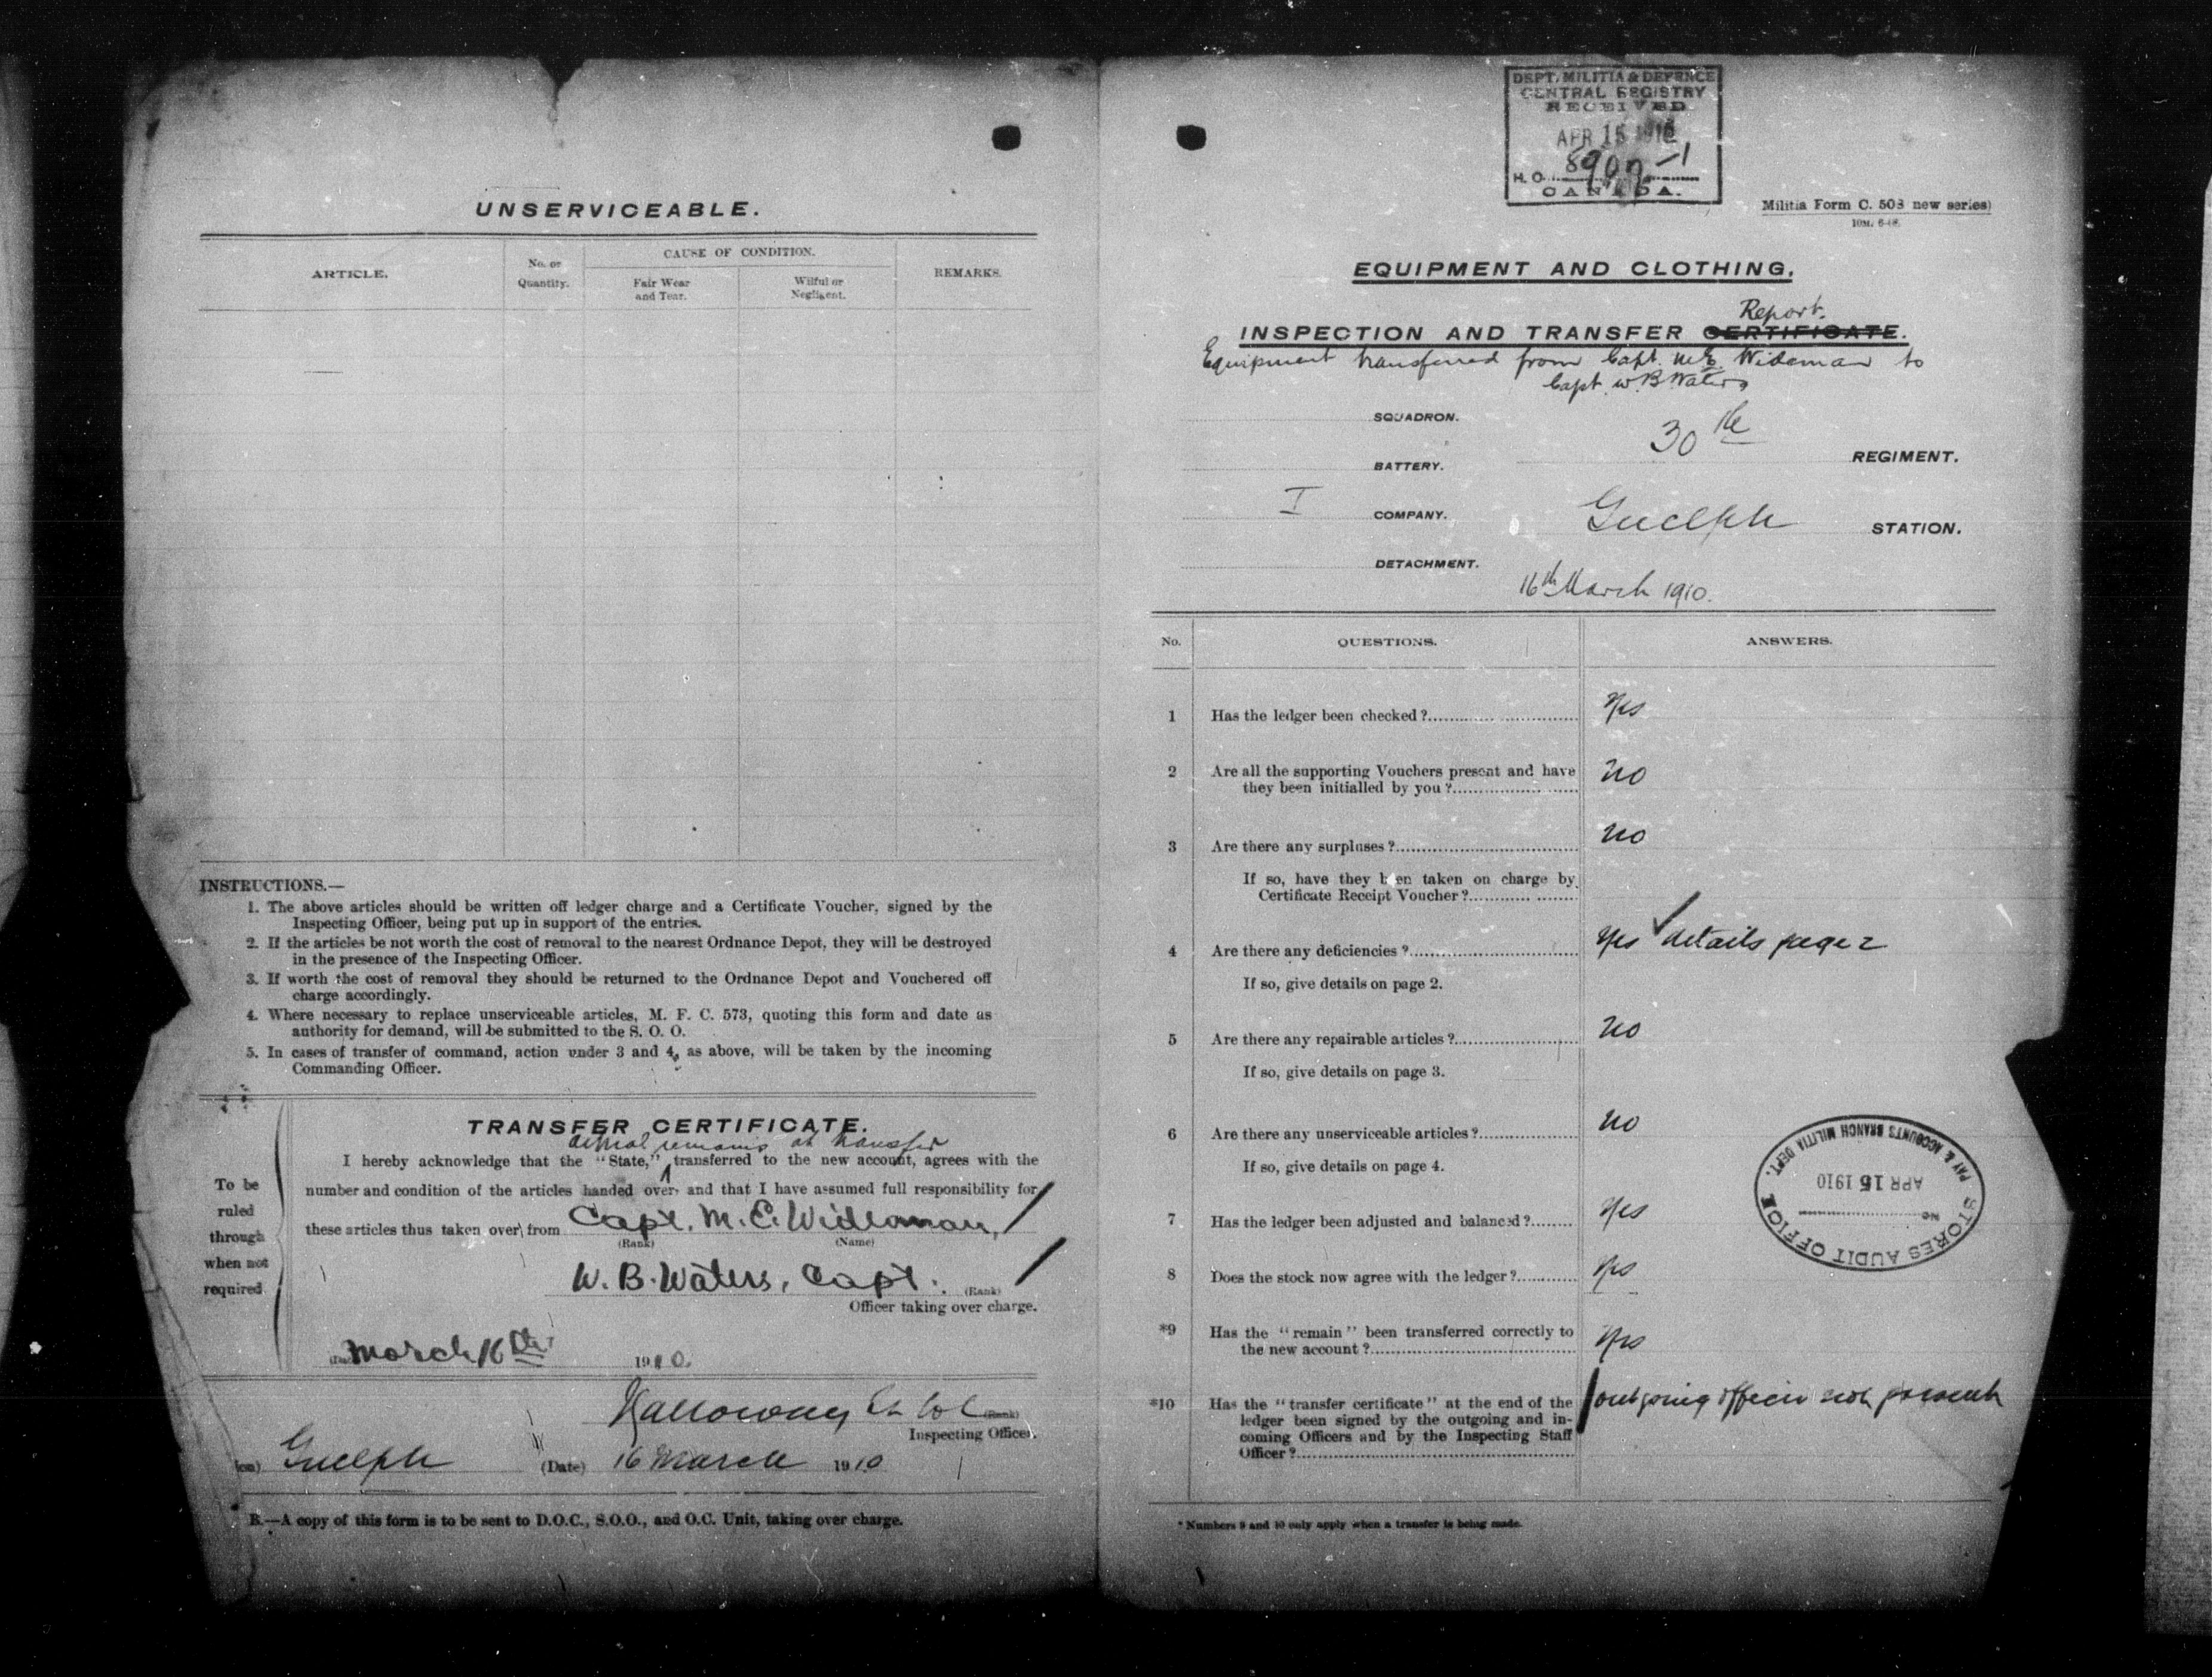 UNSERVICEABLE.
ARTICLE.
No. or
Quantity.
CAUSE OF CONDITION.
Fair Wear
and Tear.
Wilful or
Negligent.
REMARKS.
INSTRUCTIONS.—
1. The above articles should be written off ledger charge and a Certificate Voucher, signed by the
Inspecting Officer, being put up in support of the entries.
2. If the articles be not worth the cost of removal to the nearest Ordnance Depot, they will be destroyed
in the presence of the Inspecting Officer.
3. If worth the cost of removal they should be returned to the Ordnance Depot and Vouchered off
charge accordingly.
4. Where necessary to replace unserviceable articles, M. F. C. 573, quoting this form and date as
authority for demand, will be submitted to the S. O. O.
5. In cases of transfer of command, action under 3 and 4, as above, will be taken by the incoming
Commanding Officer.
TRANSFER CERTIFICATE.
actual remains at transfer
I hereby acknowledge that the "State," transferred to the new account, agrees with the
number and condition of the articles handed over, and that I have assumed full responsibility for
these articles thus taken over from Capt. M. E. Wideman,
(Rank) (Name)
To be
ruled
through
when not
required
W. B. Waters, Capt.
(Rank)
Officer taking over charge.
March 16th 1910.
Galloway Lt Col (Rank)
Inspecting Officer.
ion) Guelph (Date) 16 March 1910
B.—A copy of this form is to be sent to D.O.C., S.O.O., and O.C. Unit, taking over charge.
DEPT. MILITIA & DEFENCE
CENTRAL REGISTRY
RECEIVED
APR 15 1910
H.Q.
CANADA.
Militia Form C. 503 new series)
10M. 6-08.
EQUIPMENT AND CLOTHING.
Report.
INSPECTION AND TRANSFER CERTIFICATE.
Equipment transferred from Capt. M.E. Wideman to
Capt. W B Waters
SQUADRON.
BATTERY.
30th REGIMENT.
I COMPANY.
Guelph STATION.
DETACHMENT.
16th March 1910.
No. QUESTIONS. ANSWERS.
1 Has the ledger been checked? Yes
2 Are all the supporting Vouchers present and have
they been initialled by you? No
3 Are there any surpluses? No
If so, have they been taken on charge by
Certificate Receipt Voucher?
4 Are there any deficiencies? Yes details page 2
If so, give details on page 2.
5 Are there any repairable articles? No
If so, give details on page 3.
6 Are there any unserviceable articles? No
If so, give details on page 4.
7 Has the ledger been adjusted and balanced? Yes
8 Does the stock now agree with the ledger? Yes
*9 Has the "remain" been transferred correctly to
the new account? Yes
*10 Has the "transfer certificate" at the end of the
ledger been signed by the outgoing and in-
coming Officers and by the Inspecting Staff
Officer?
outgoing officer not present
STORES AUDIT OFFICE
No
APR 15 1910
PAY & ACCOUNTS BRANCH MILITIA DEPT.
* Numbers 9 and 10 only apply when a transfer is being made.